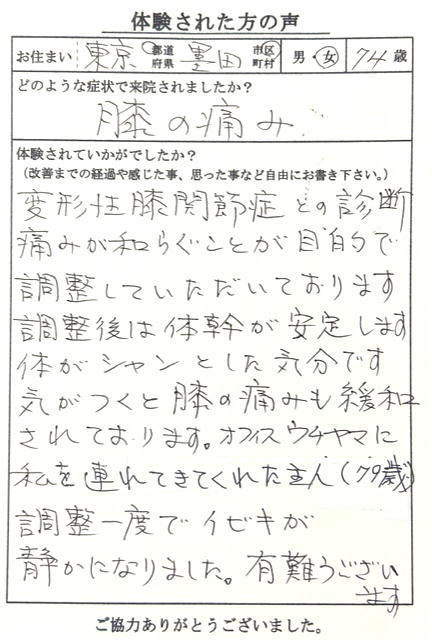 体験された方の声
お住まい 東京 都道府県 墨田 市区町村 男・女 74歳
どのような症状で来院されましたか？
膝の痛み
体験されていかがでしたか？
（改善までの経過や感じた事、思った事など自由にお書き下さい。）
変形性膝関節症との診断
痛みが和らぐことが目的で
調整していただいております
調整後は体幹が安定します
体がシャンとした気分です
気がつくと膝の痛みも緩和
されております。オフィスウチヤマに
私を連れてきてくれた主人（79歳）
調整一度でイビキが
静かになりました。有難うござい
ます
ご協力ありがとうございました。